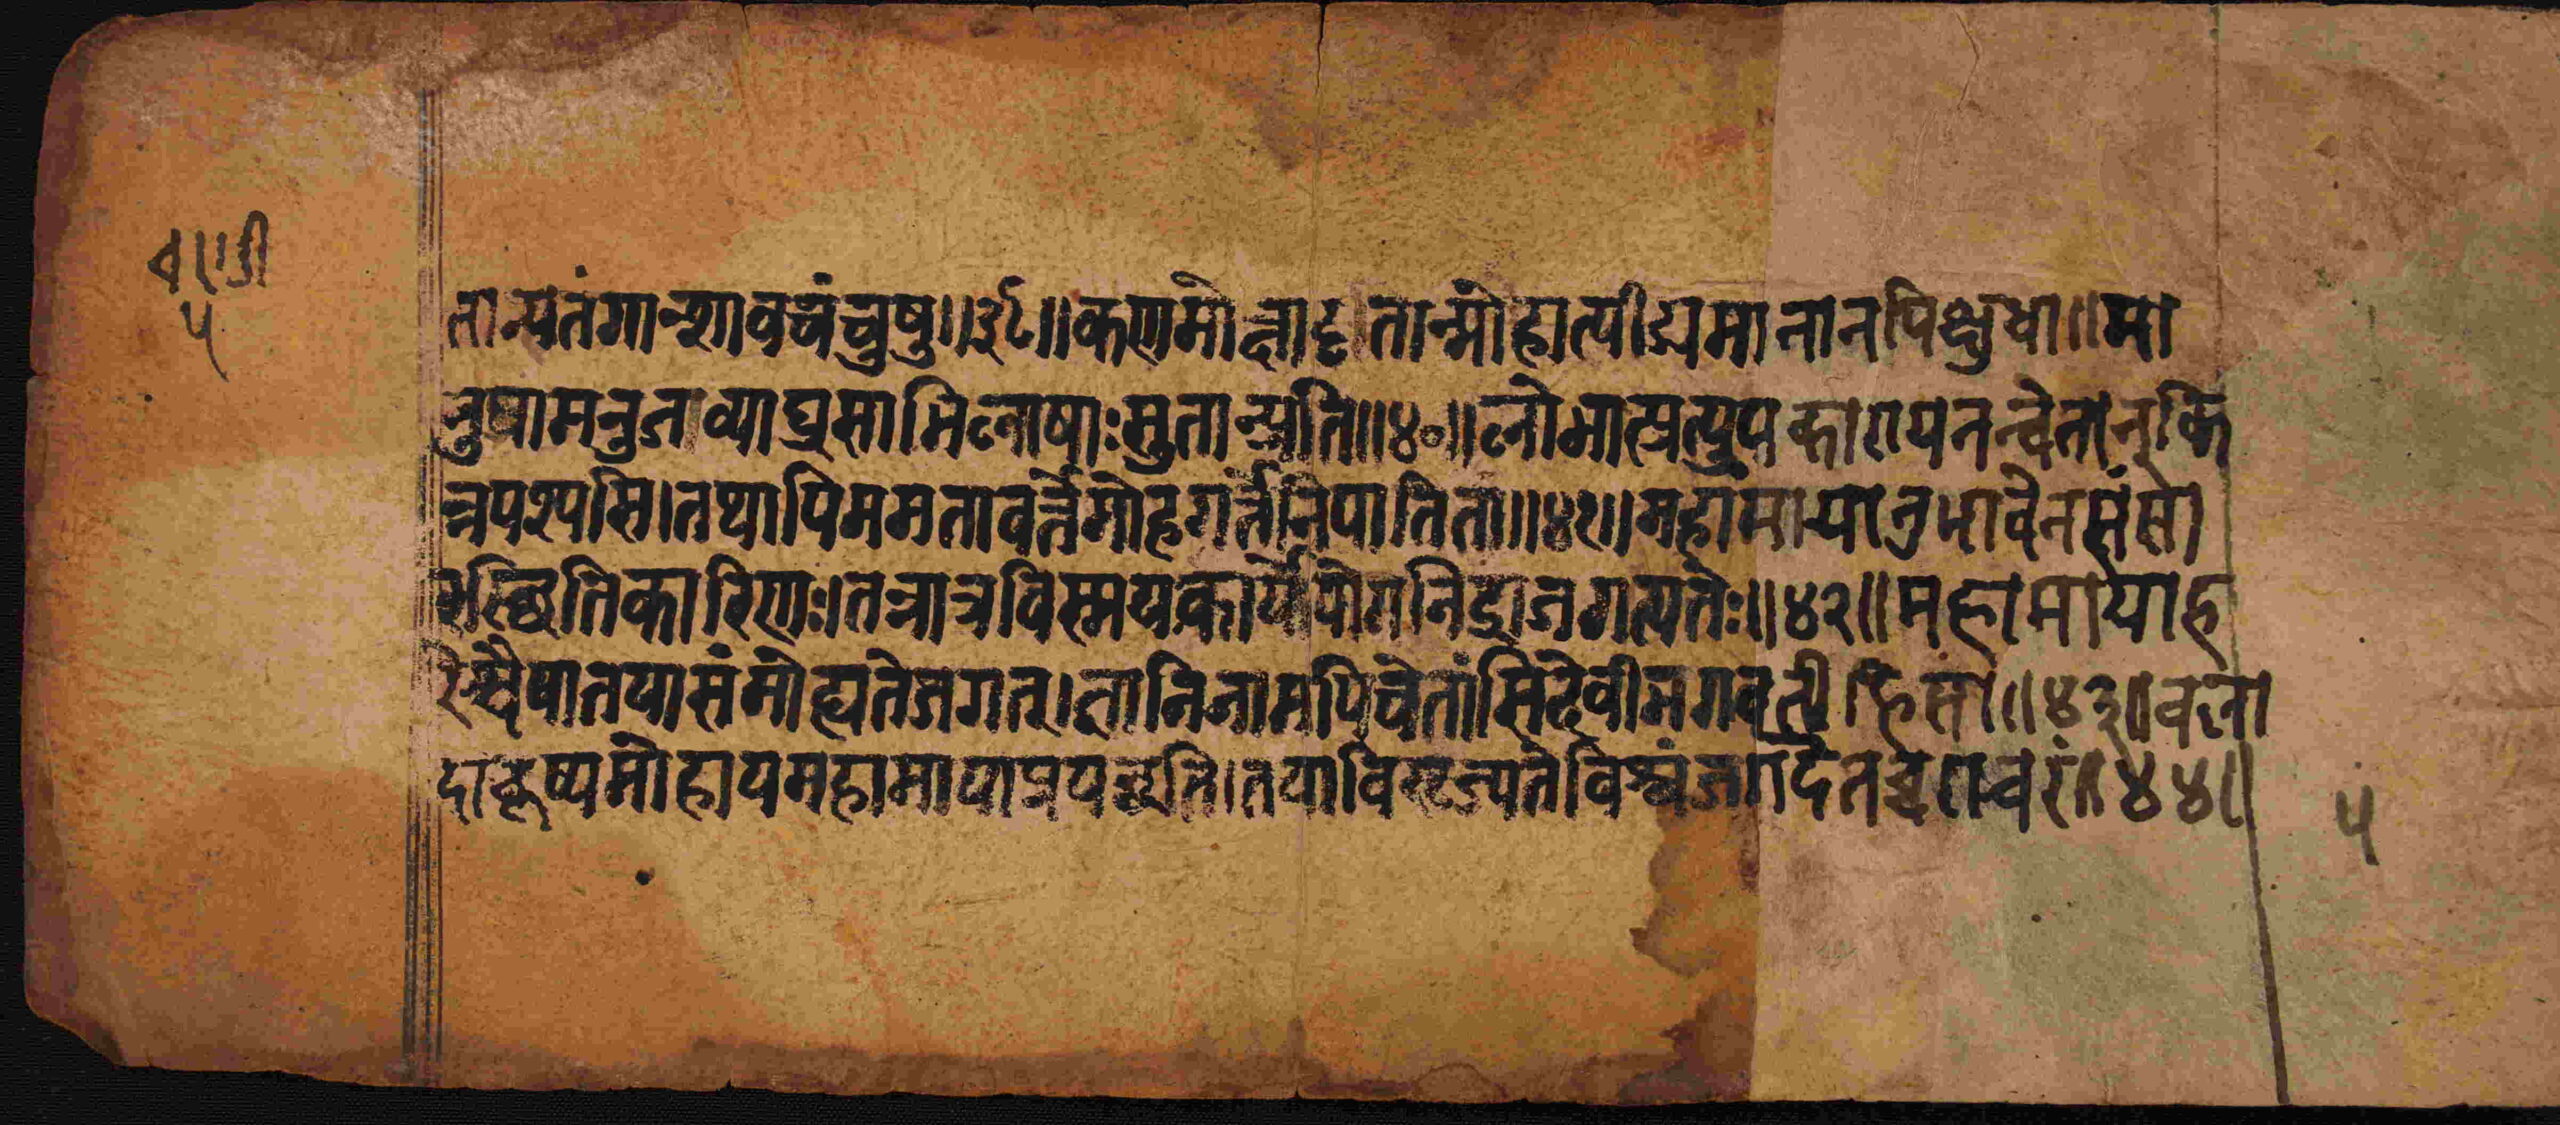 चण्डी
५
तान्पतंगान्शावचंचुषु॥३९॥कणमोक्षादृतान्मोहात्पीड्यमानानपिक्षुधा॥मा
नुषामनुजव्याघ्रसाभिलाषाःसुतान्प्रति॥४०॥लोभात्प्रत्युपकारायनन्वेतान्किं
न्नपश्यसि।तथापिममतावर्त्तेमोहगर्त्तेनिपातिता॥४१॥महामायानुभावेनसंसा
रस्थितिकारिणः।तन्नात्रविस्मयकार्योयोगनिद्राजगत्पतेः॥४२॥महामायाह
रेश्चैषातयासंमोह्यतेजगत्।ज्ञानिनामपिचेतांसिदेवीभगवती।हिसा॥४३॥बला
दाकृष्यमोहायमहामायाप्रयच्छति।तयाविसृज्यतेविश्वंजगदेतच्चराचरं॥४४॥
५